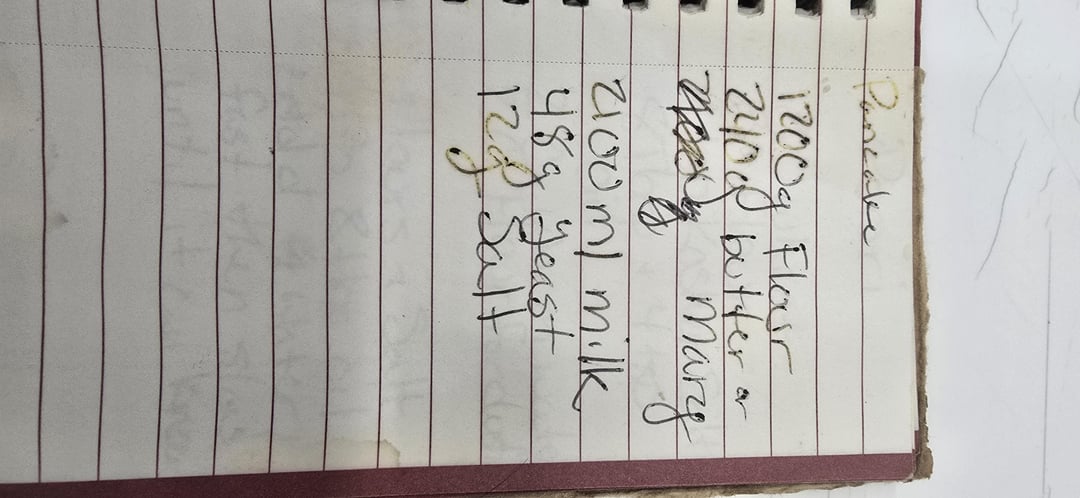 Pancake
1200g Flour
240g butter or
marg
2400 ml milk
48g yeast
12g Salt